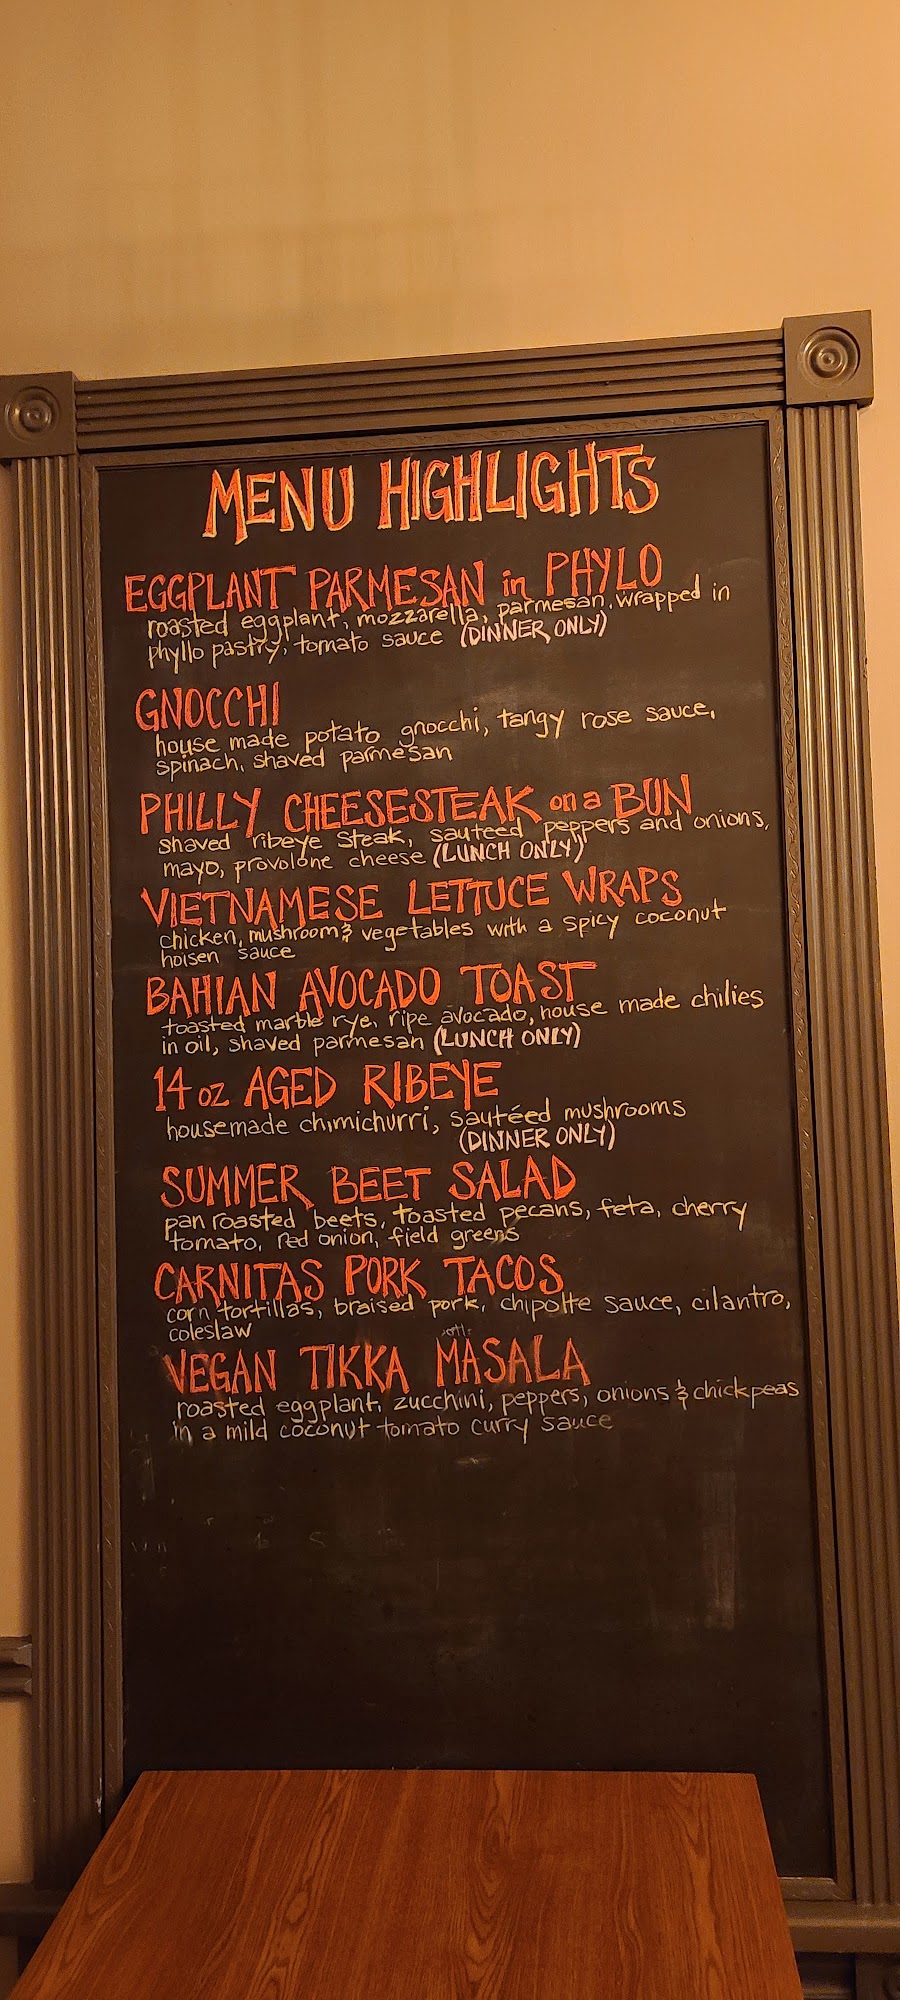 MENU HIGHLIGHTS
EGGPLANT PARMESAN in PHYLO
roasted eggplant, mozzarella, parmesan, wrapped in
phyllo pastry, tomato sauce (DINNER ONLY)
GNOCCHI
house made potato gnocchi, tangy rose sauce,
spinach, shaved parmesan
PHILLY CHEESESTEAK on a BUN
shaved ribeye steak, sauteed peppers and onions,
mayo, provolone cheese (LUNCH ONLY)
VIETNAMESE LETTUCE WRAPS
chicken, mushroom & vegetables with a spicy coconut
hoisen sauce
BAHIAN AVOCADO TOAST
toasted marble rye, ripe avocado, house made chilies
in oil, shaved parmesan (LUNCH ONLY)
14 oz AGED RIBEYE
housemade chimichurri, sautéed mushrooms
(DINNER ONLY)
SUMMER BEET SALAD
pan roasted beets, toasted pecans, feta, cherry
tomato, red onion, field greens
CARNITAS PORK TACOS
corn tortillas, braised pork, chipolte sauce, cilantro,
coleslaw
VEGAN TIKKA MASALA
roasted eggplant, zucchini, peppers, onions & chickpeas
in a mild coconut tomato curry sauce